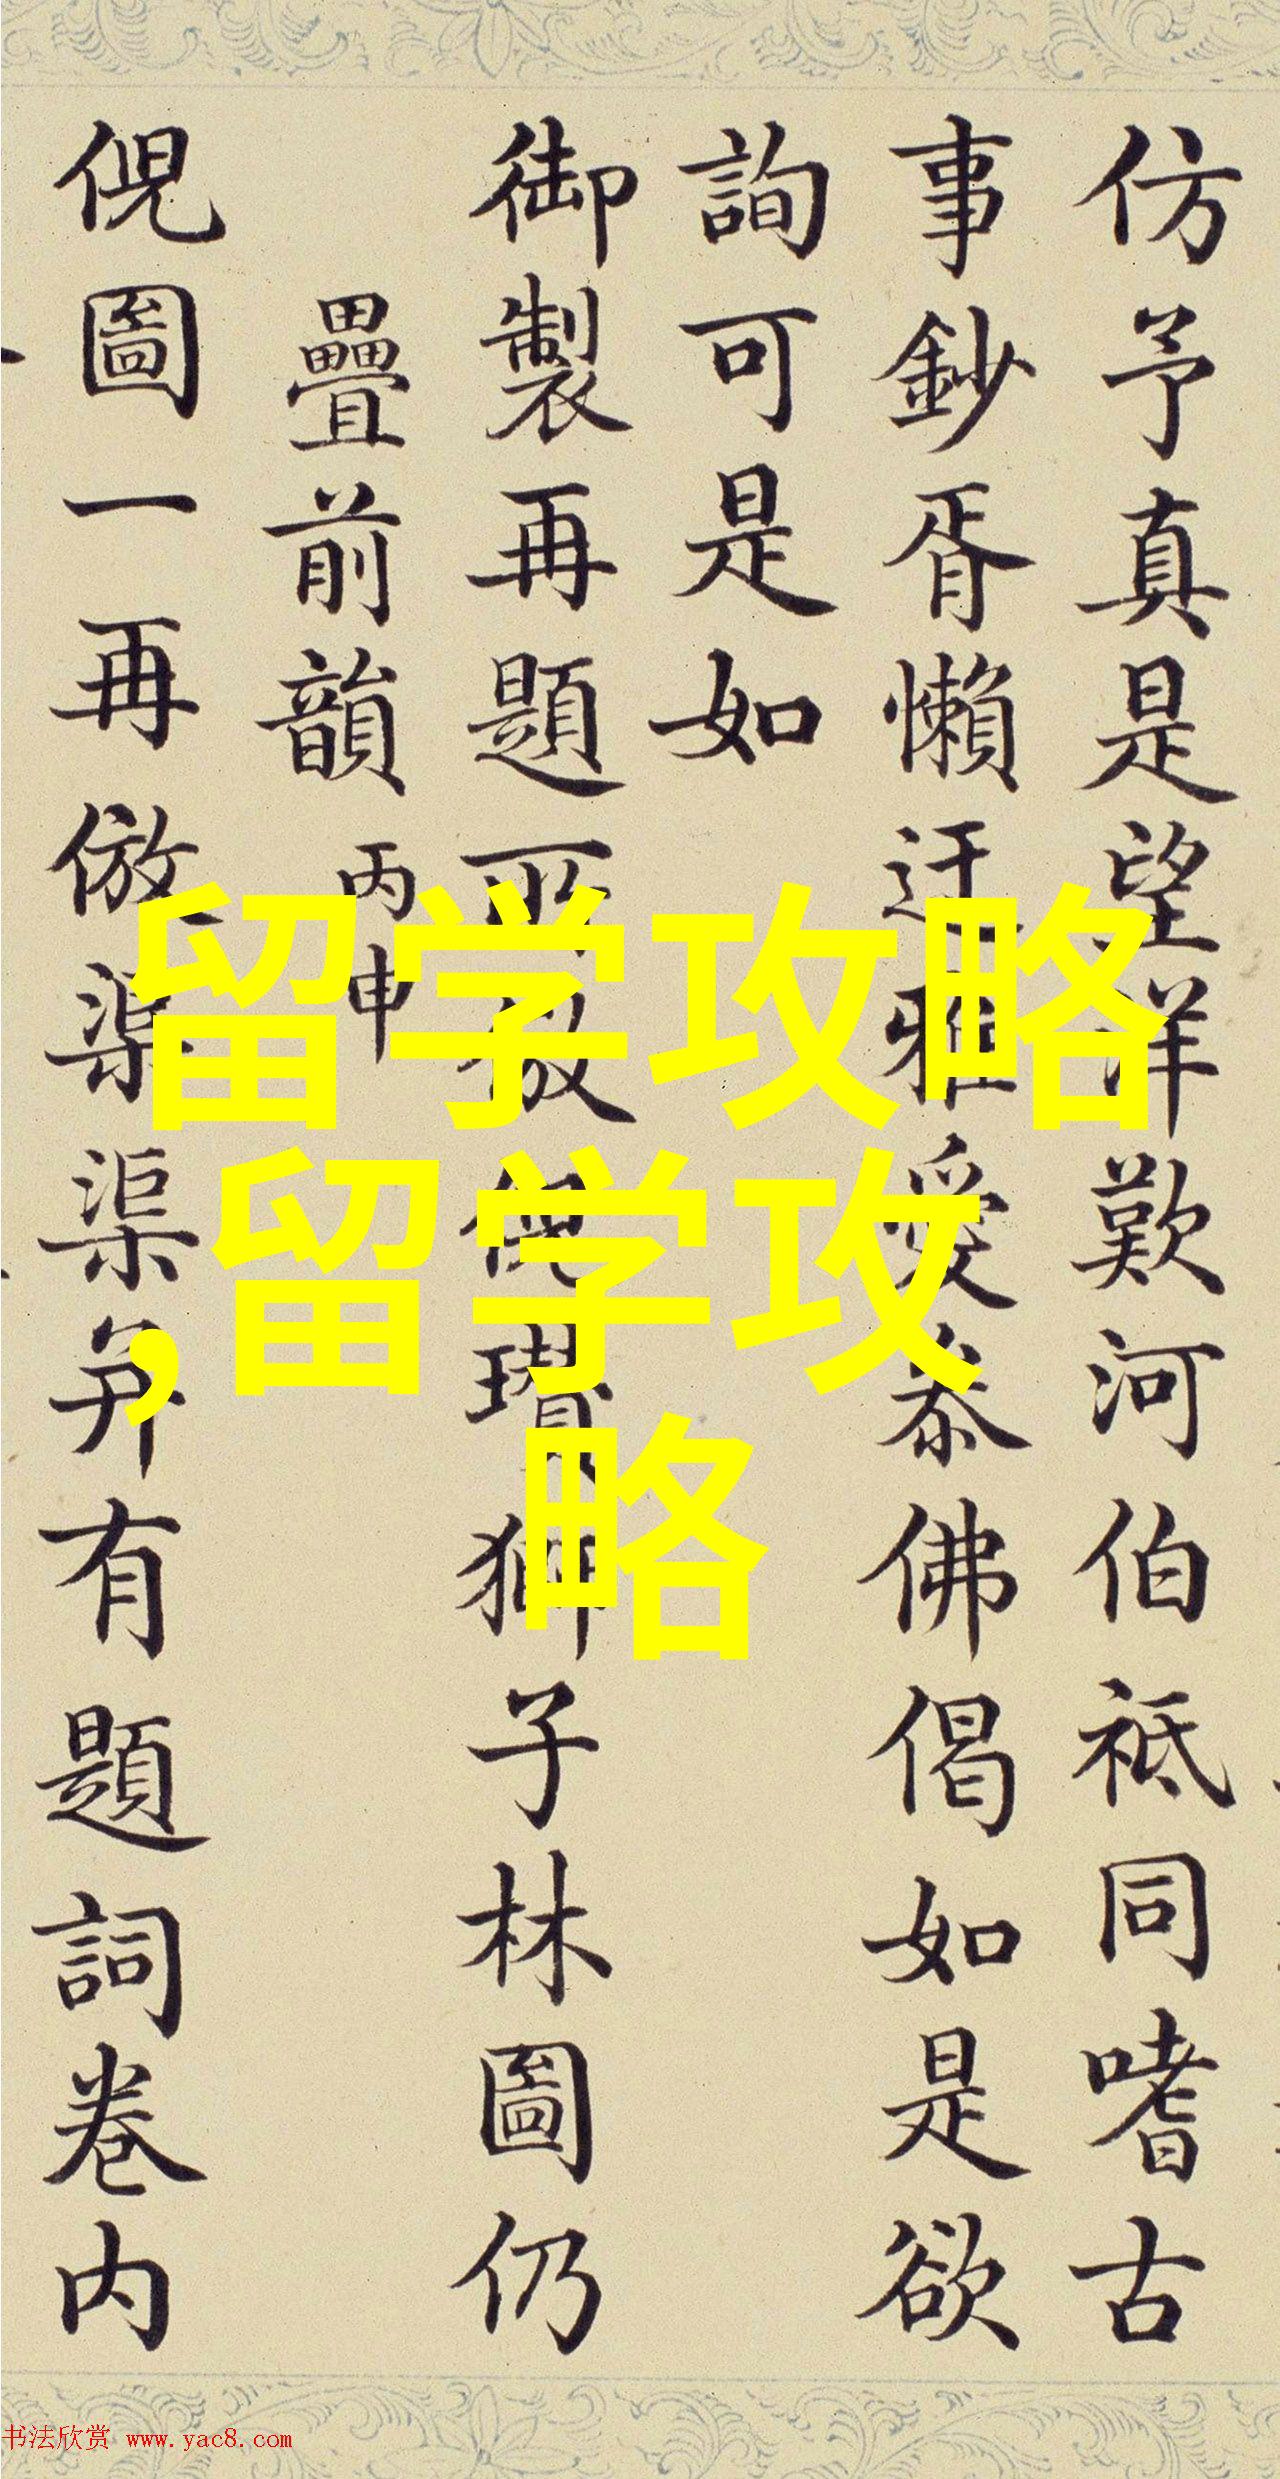 仿予真是望洋歎河伯祗同嗜古
事鈔胥懶迂雅愛叅佛偈如是欲
詢可是如
御製再題所倣倪瓚獅子林圖仍
疊前韻 丙申
倪圖一再倣渠渠并有題詞卷内
留学攻略
,留学攻
略
书法欣赏 www.yac8.com